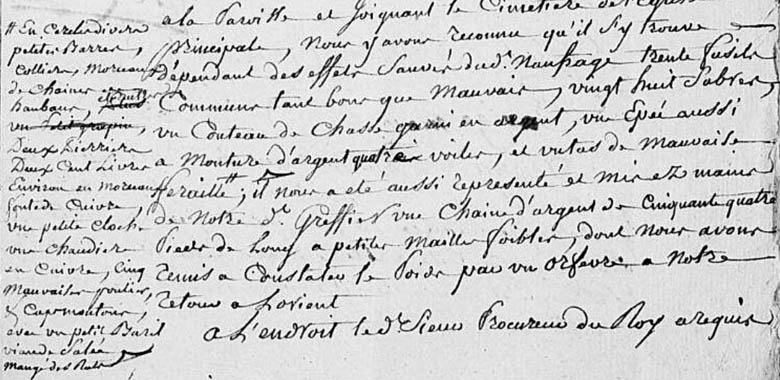 a la Paroisse et joignant le Cimetiere de l'Eglise
principale, Nous y avons reconnu qu'il s'y trouve
dépendant des effets Sauvés dud. Naufrage trente fusils
Communs tant bons que Mauvais, vingt huit Sabres,
un Couteau de Chasse garni en argent, une Epée aussi
a Monture d'argent quatre voiles, et un tas de Mauvaise
ferraille #; il nous a eté aussi representé et mis ez mains
de Notre d. Greffier une Chaine d'argent de Cinquante quatre
Pieds de Long a petites Mailles foibles, dont Nous avons
remis a Constater le Poids par un Orfevre a Notre
retour a Lorient
a L'endroit led. Sieur Procureur du Roy a requis
# En Cercles divers
petites Barres,
Colliers, Morceaux
de Chaine
haubans,
un petit grapin,
Deux Pierriers
Deux Cent Livres
Environ en Morceaux
fonte de Cuivre,
une petite Cloche
une Chaudiere
en Cuivre, Cinq
Mauvaises poulies,
& Capmoutons,
avec un petit Baril
viande Salée
mangé des Rats